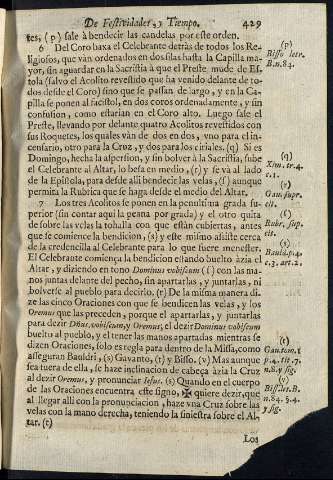 De Festividades, y Tiempo. 429
tes, (p) sale à bendecir las candelas por este orden.
6 Del Coro baxa el Celebrante detràs de todos los Re-
ligiosos, que vàn ordenados en dos filas hasta la Capilla ma-
yor, sin aguardar en la Sacristìa à que el Preste mude de Es-
tola (salvo el Acolito revestido que ha venido delante de to-
dos desde el Coro) sino que se passan de largo, y en la Ca-
pilla se ponen al facistol, en dos coros ordenadamente, y sin
confusion, como estarìan en el Coro alto. Luego sale el
Preste, llevando por delante quatro Acolitos revestidos con
sus Roquetes, los quales vàn de dos en dos, vno para el in-
censario, otro para la Cruz, y dos para los ciriales. (q) Si es
Domingo, hecha la aspersion, y sin bolver à la Sacristìa, sube
el Celebrante al Altar, lo besa en medio, (r) y se và al lado
de la Epistola, para desde alli bendecir las velas, (s) aunque
permite la Rubrica que se haga desde el medio del Altar.
7 Los tres Acolitos se ponen en la penultima grada su-
perior (sin contar aqui la peana por grada) y el otro quita
de sobre las velas la tohalla con que estàn cubiertas, antes
que se comience la bendicion, (s) y este mismo assiste cerca
de la credencilla al Celebrante para lo que fuere menester.
El Celebrante comiença la bendicion estando buelto àzia el
Altar, y diziendo en tono Dominus vobiscum (s) con las ma-
nos juntas delante del pecho, sin apartarlas, y juntarlas, ni
bolverse al pueblo para decirlo. (t) De la misma manera di-
ze las cinco Oraciones con que se bendicen las velas, y los
Oremus que las preceden, porque el apartarlas, y juntarlas
para dezir Dñus vobiscum, y Oremus, el dezir Dominus vobiscum
buelto al pueblo, y el tener las manos apartadas mientras se
dizen Oraciones, solo es regla para dentro de la Missa, como
asseguran Bauldri, (s) Gavanto, (t) y Bisso. (v) Mas aunque
sea fuera de ella, se haze inclinacion de cabeça àzia la Cruz
al dezir Oremus, y pronunciar Iesus. (s) Quando en el cuerpo
de las Oraciones encuentra este signo, ✠ quiere dezir, que
al llegar alli con la pronunciacion, haze vna Cruz sobre las
velas con la mano derecha, teniendo la siniestra sobre el Al-
tar. (t)
Los
(p)
Bisso letr.
B.n.84.
(q)
Xim. tr.4.
c.1.
(r)
Gav. supr.
cit.
(s)
Rubr. sup.
cit.
(s)
Bauld. p.4.
c.3. art.2.
(t)
Gav. tom.1
p.4. tit.7.
n.8. y sig.
(v)
Biss. let. B.
n.84. §.4.
y sig.